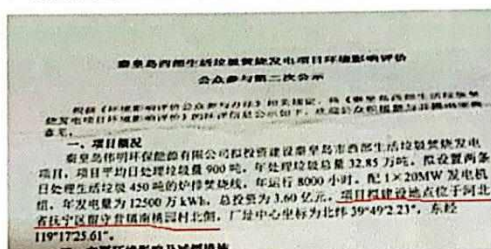 秦皇岛西部生活垃圾焚烧发电项目环境影响评价
公众参与第二次公示
根据《环境影响评价公众参与办法》相关规定,将《秦皇岛西部生活垃圾焚
烧发电项目环境影响评价》的环评信息公示如下,欢迎公众积极参与并提出宝贵
意见。
一、项目概况
秦皇岛伟明环保能源有限公司拟投资建设秦皇岛市西部生活垃圾焚烧发电
项目,项目平均日处理垃圾量 900 吨,年处理垃圾总量 32.85 万吨,拟设置两条
日处理生活垃圾 450 吨的炉排焚烧线,年运行 8000 小时,配 1×20MW 发电机
组,年发电量为 12500 万 kWh,总投资为 3.60 亿元,项目拟建设地点位于河北
省抚宁区留守营镇南桃园村北侧,厂址中心坐标为北纬 39°49'2.23",东经
119°17'25.61"。